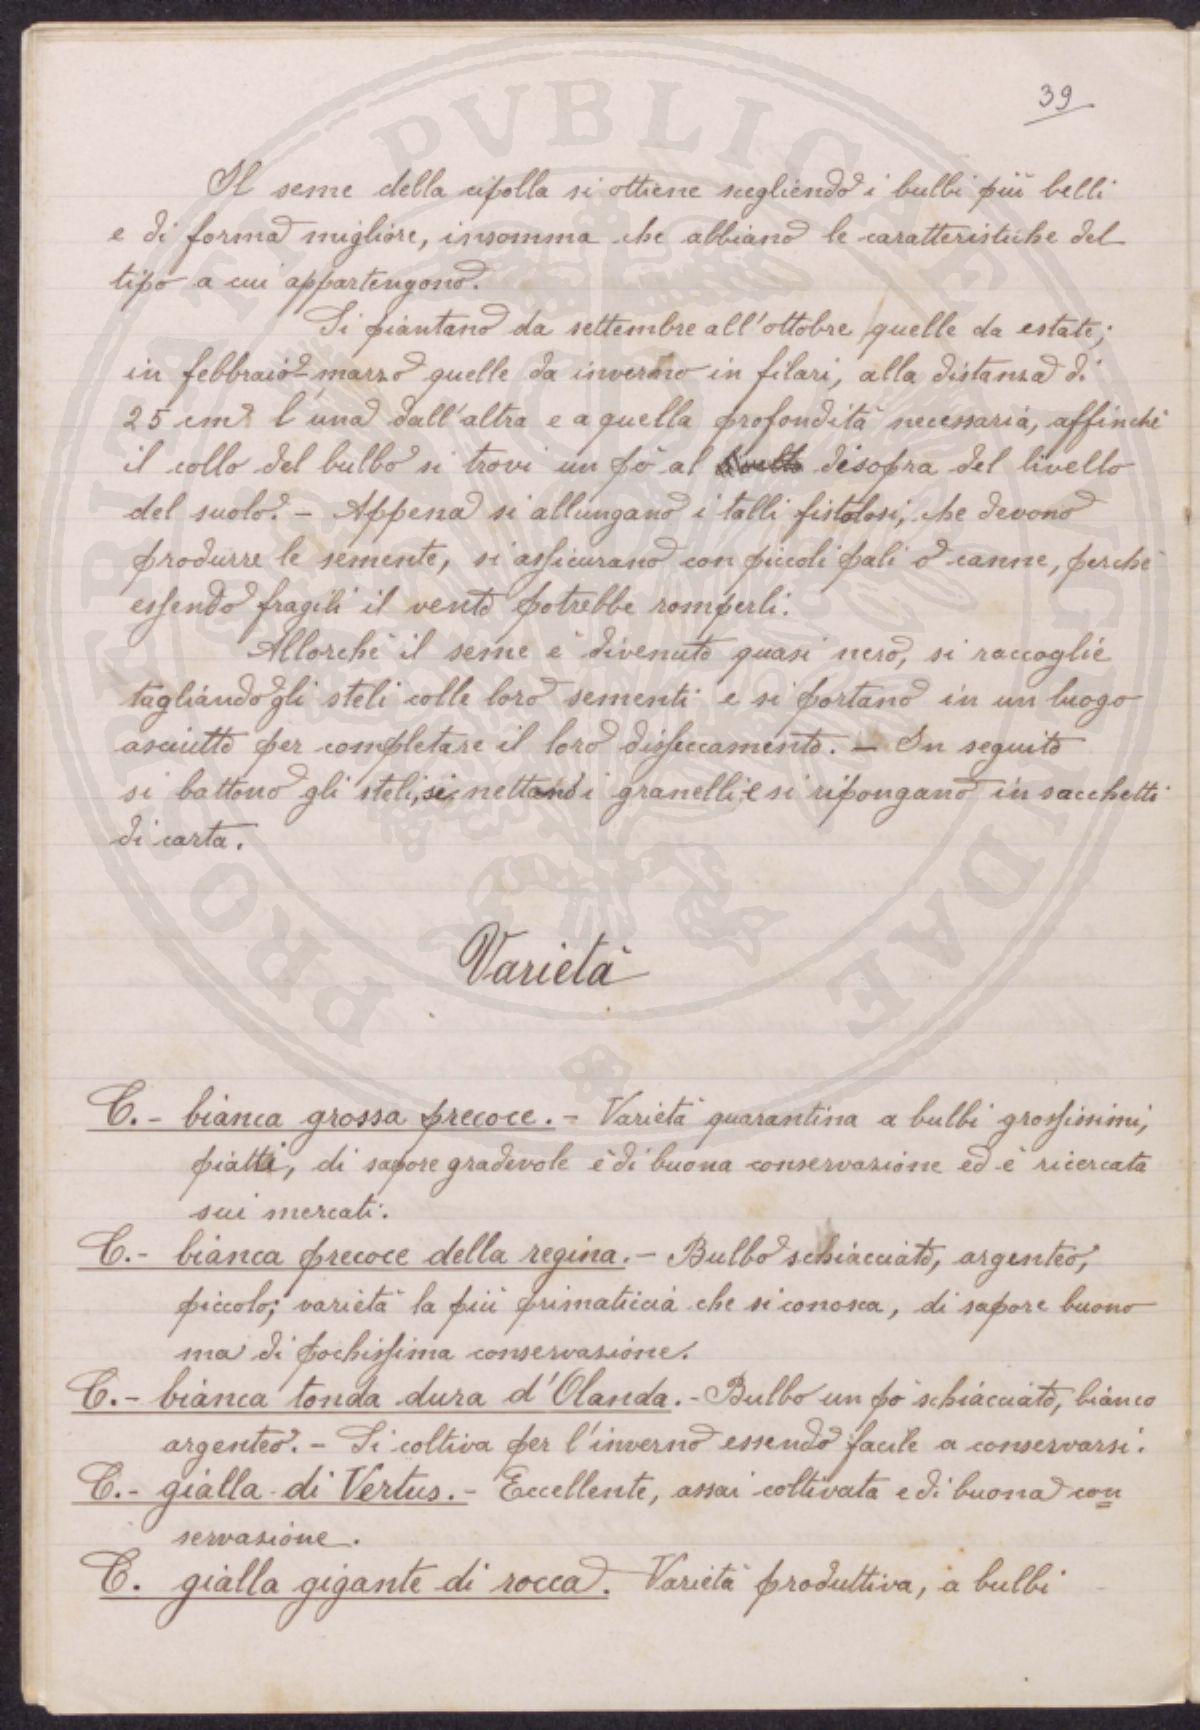 39
Il seme della cipolla si ottiene scegliendo i bulbi più belli
e di forma migliore, insomma che abbiano le caratteristiche del
tipo a cui appartengono.
Si piantano da settembre all'ottobre quelle da estate;
in febbraio-marzo quelle da inverno in filari, alla distanza di
25 cm l'una dall'altra e a quella profondità necessaria, affinchè
il collo del bulbo si trovi un pò al disopra del livello
del suolo. - Appena si allungano i talli fistolosi, che devono
produrre le semente, si assicurano con piccoli pali o canne, perchè
essendo fragili il vento potrebbe romperli.
Allorchè il seme è divenuto quasi nero, si raccoglie
tagliando gli steli colle loro sementi e si portano in un luogo
asciutto per completare il loro disseccamento. - In seguito
si battono gli steli, si nettano i granelli e si ripongano in sacchetti
di carta.
Varietà
C. - bianca grossa precoce. - Varietà quarantina a bulbi grossissimi,
piatti, di sapore gradevole è di buona conservazione ed è ricercata
sui mercati.
C. - bianca precoce della regina. - Bulbo schiacciato, argenteo,
piccolo; varietà la più primaticcia che si conosca, di sapore buono
ma di pochissima conservazione.
C. - bianca tonda dura d'Olanda. - Bulbo un pò schiacciato, bianco
argenteo. - Si coltiva per l'inverno essendo facile a conservarsi.
C. - gialla di Vertus. - Eccellente, assai coltivata e di buona con
servazione.
C. gialla gigante di rocca. Varietà produttiva, a bulbi
PROPRIETATI PVBLICAE VIGVNDAE